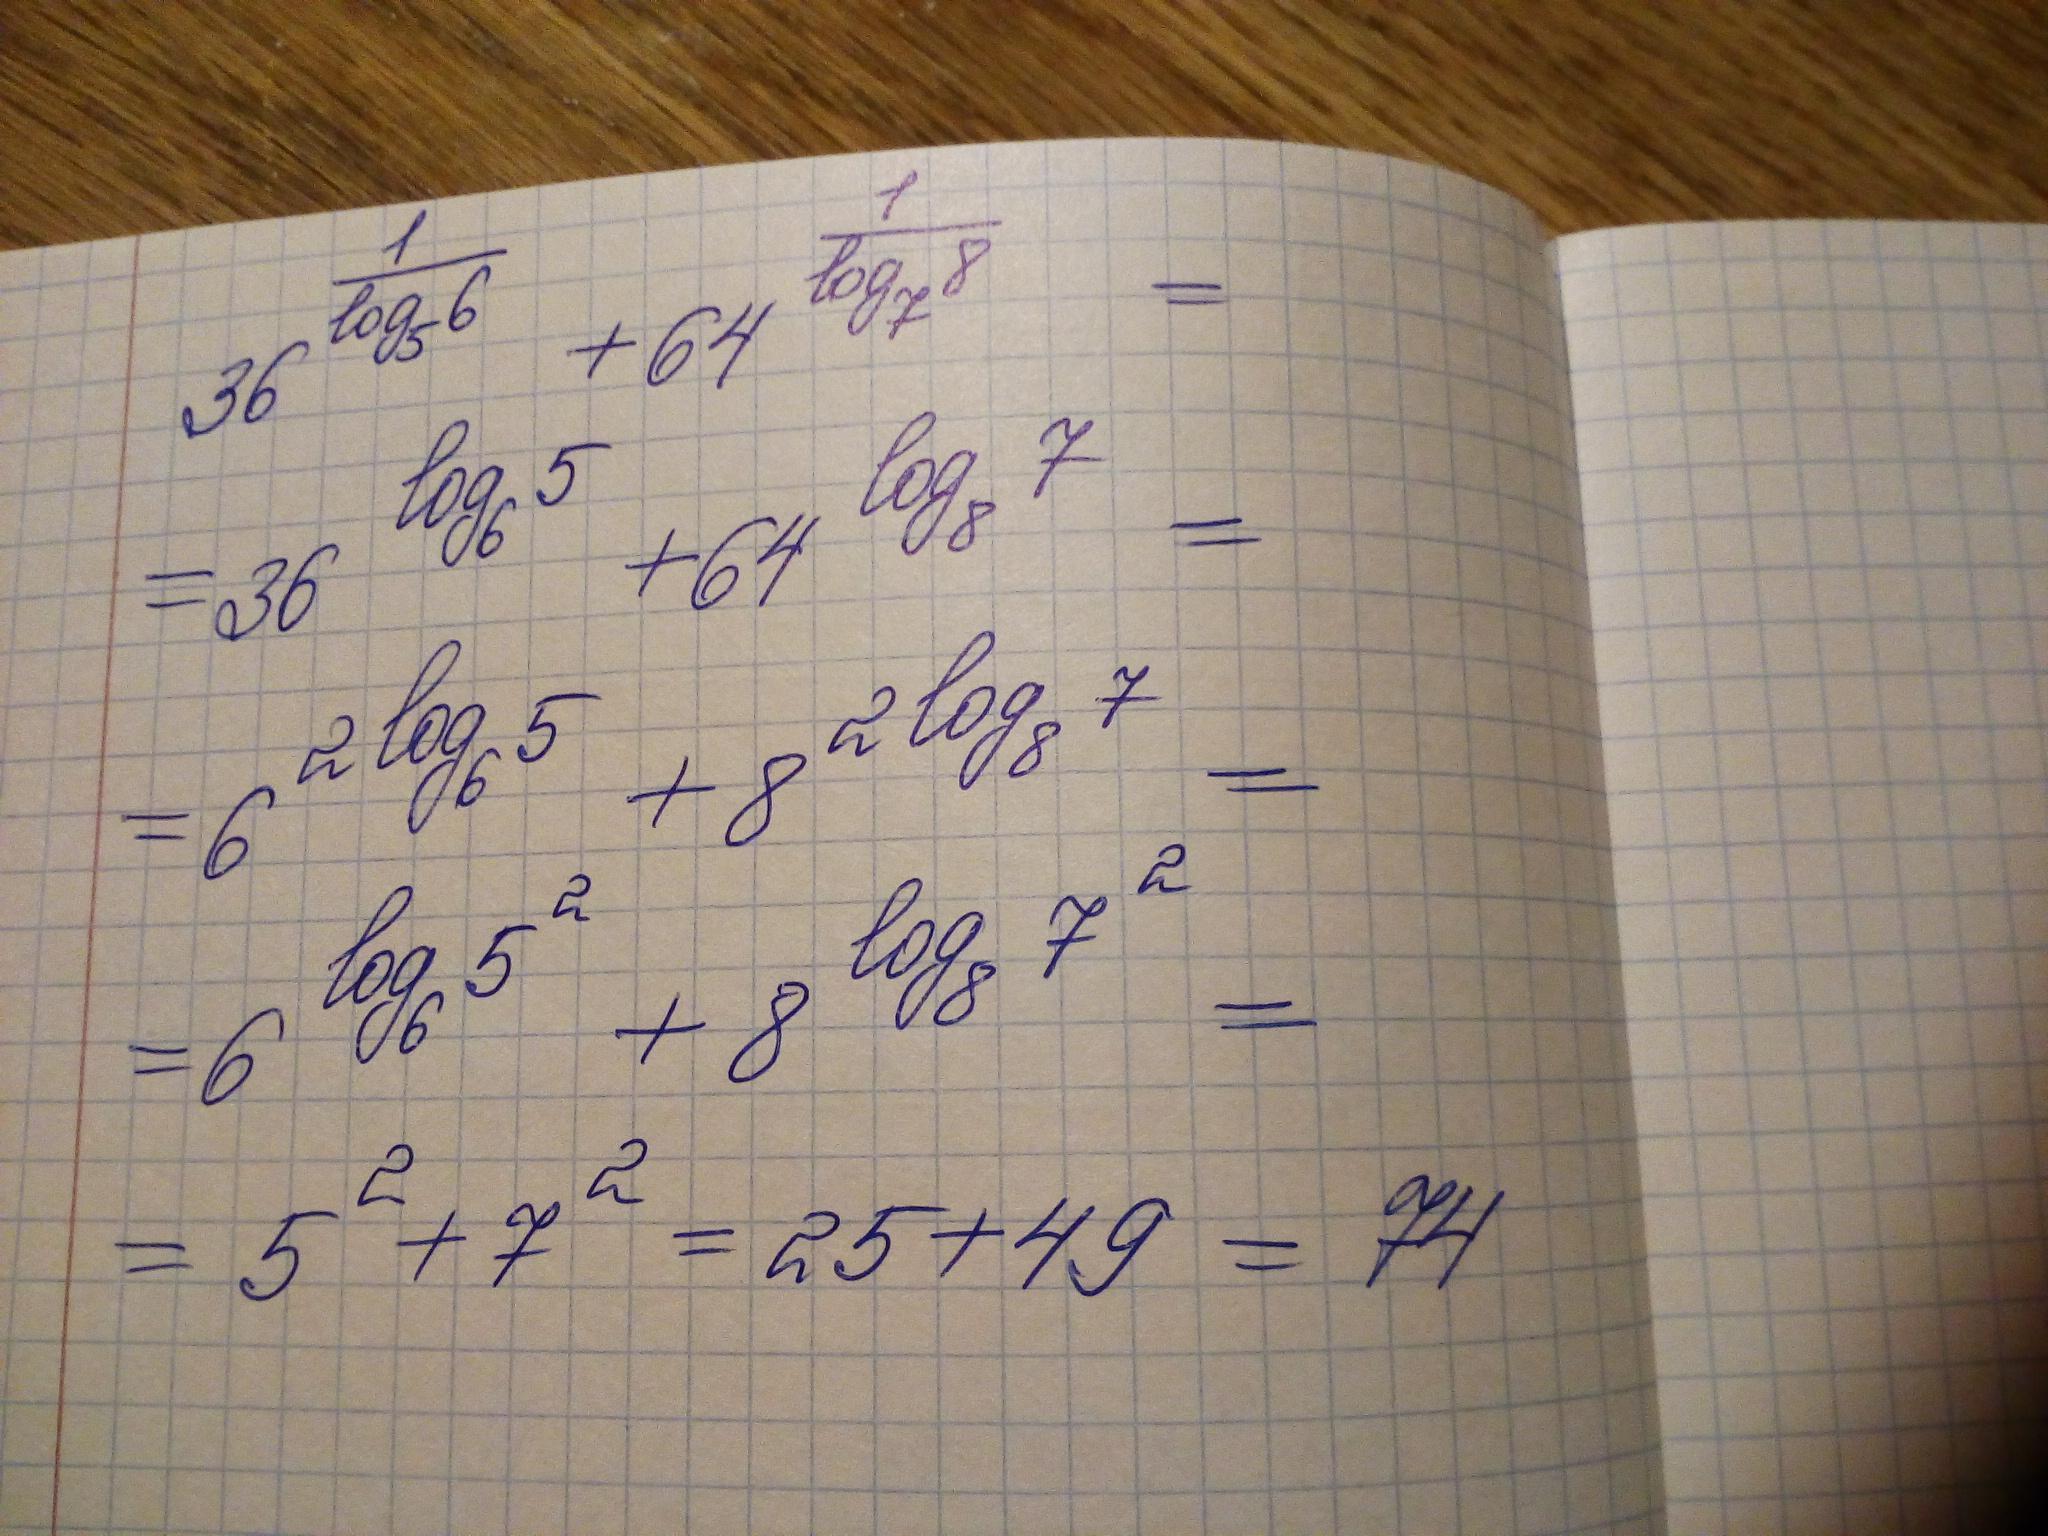 36^(1/log₅6) + 64^(1/log₇8) =
= 36^(log₆5) + 64^(log₈7) =
= 6^(2log₆5) + 8^(2log₈7) =
= 6^(log₆5²) + 8^(log₈7²) =
= 5² + 7² = 25 + 49 = 74